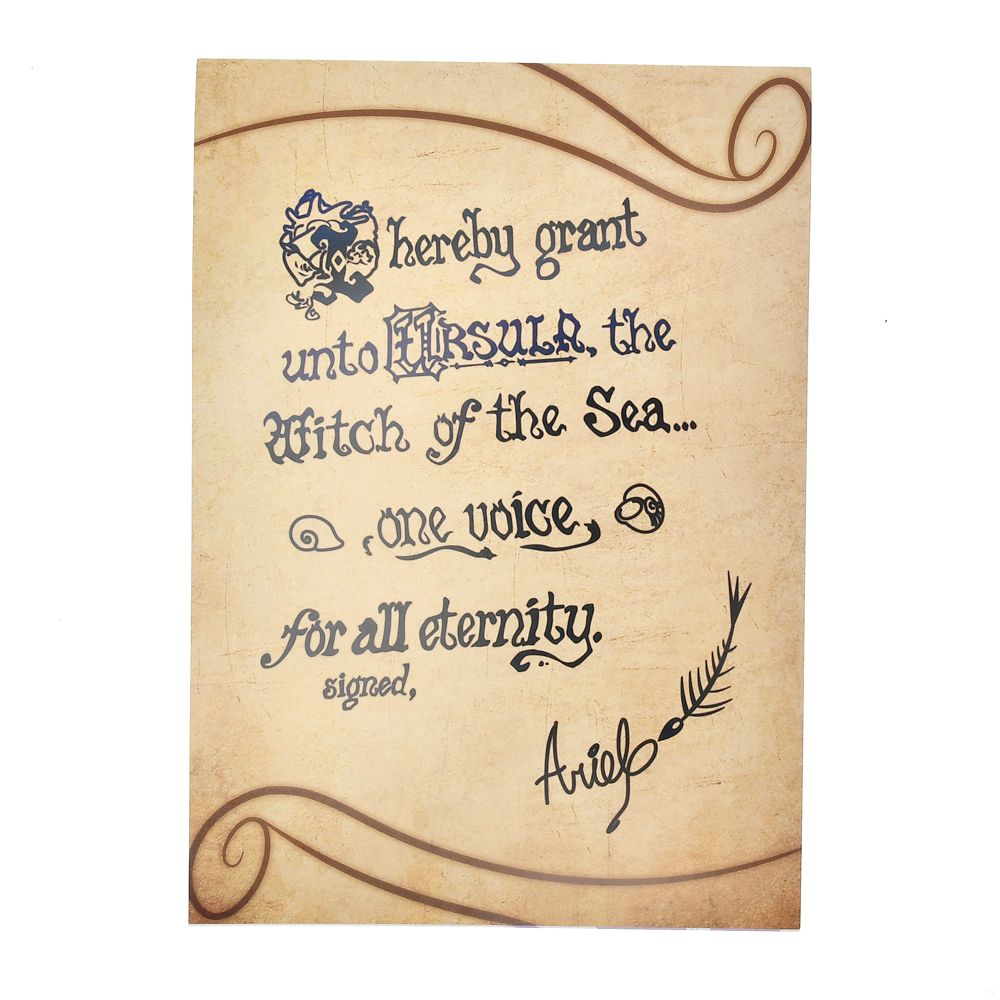 I hereby grant
unto Ursula, the
Witch of the Sea...
one voice,
for all eternity.
signed,
Ariel